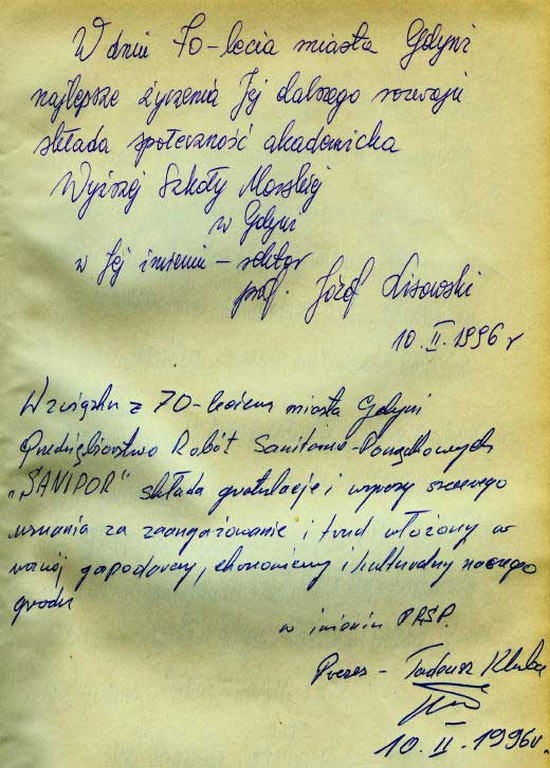 W dniu 70-lecia miasta Gdyni
najlepsze życzenia Jej dalszego rozwoju
składa społeczność akademicka
Wyższej Szkoły Morskiej
w Gdyni
w Jej imieniu – rektor
prof. Józef Lisowski
10.II.1996 r
W związku z 70-leciem miasta Gdyni
Przedsiębiorstwo Robót Sanitarno-Porządkowych
„SANIPOR" składa gratulacje i wyrazy szczerego
uznania za zaangażowanie i trud włożony w
rozwój gospodarczy, ekonomiczny i kulturalny naszego
grodu
w imieniu PRSP.
Prezes – Tadeusz
10.II.1996r.